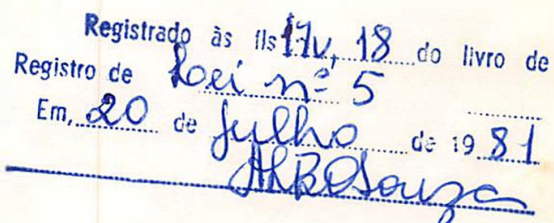 Registrado às fls 17v, 18 do livro de
Registro de Lei nº 5
Em, 20 de julho de 1981